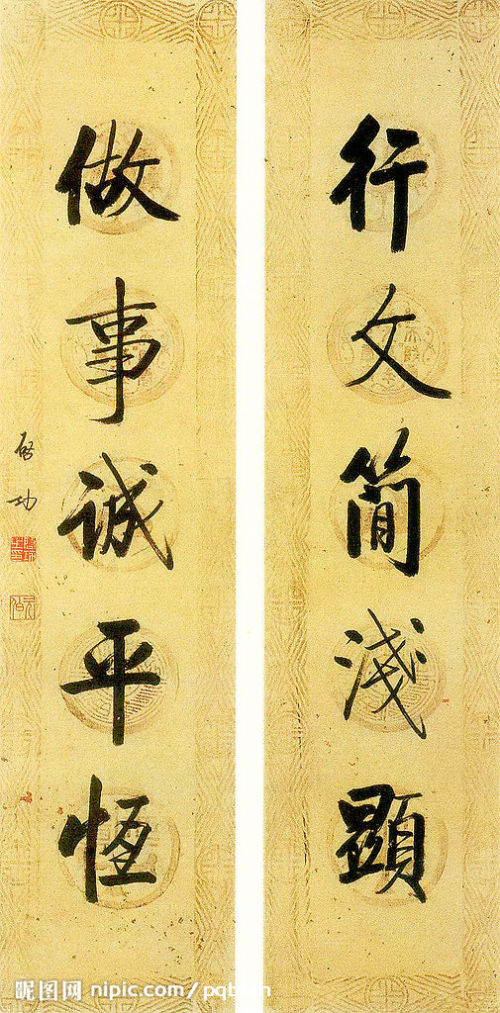 行文简淺顯
做事诚平恆
启功
昵图网 nipic.com/pqb